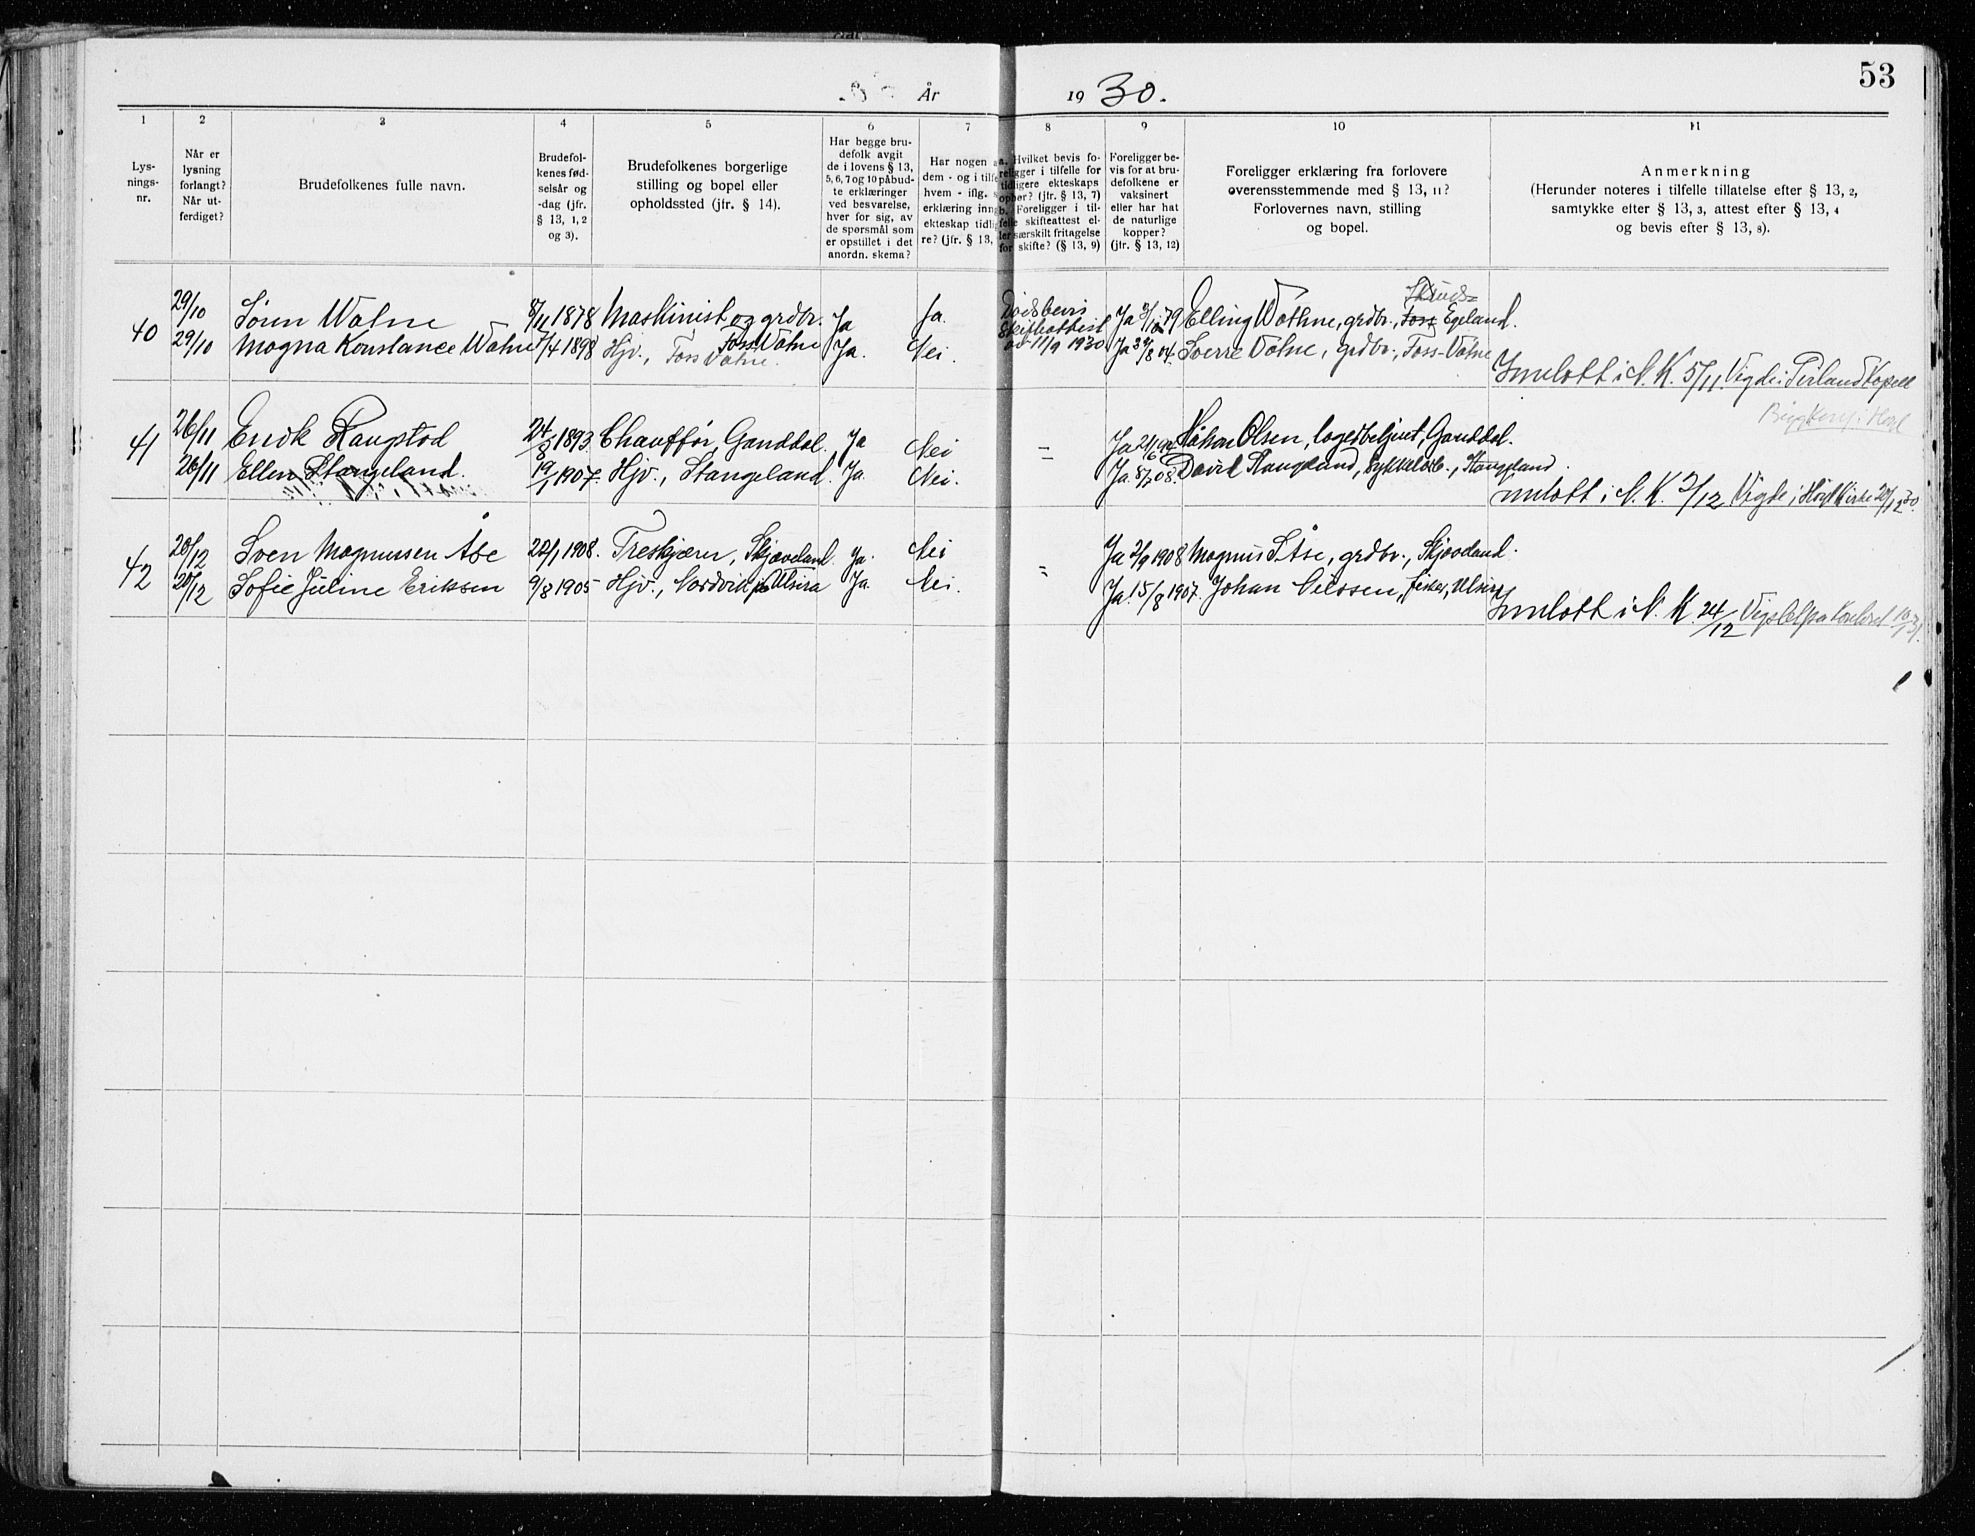 53
År 1930.
1 2 3 4 5 6 7 8 9 10 11
Lys-
nings-
nr.
Når er
lysning
forlangt?
Når ut-
ferdiget?
Brudefolkenes fulle navn.
Brudefol-
kenes fød-
selsår og
-dag (jfr.
§ 13, 1, 2
og 3).
Brudefolkenes borgerlige
stilling og bopel eller
opholdssted (jfr. § 14).
Har begge bru-
defolk avgit
de i lovens § 13,
5, 6, 7 og 10 påbud-
te erklæringer
ved besvarelse,
hver for sig, av
de spørsmål som
er opstillet i det
anordn. skema?
Har nogen a
dem - og i tilfe
hvem - iflg. s
erklæring inng
ekteskap tidlig
re? (jfr. § 13,
a. Hvilket bevis fo-
religger i tilfelle for
tidligere ekteskaps
ophør? (jfr. § 13, 7)
b. Foreligger i til-
felle skifteattest el-
ler særskilt fritagelse
for skifte? (§ 13, 9)
Foreligger be-
vis for at bru-
defolkene er
vaksinert
eller har hat
de naturlige
kopper?
(jfr. § 13, 12)
Foreligger erklæring fra forlovere
overensstemmende med § 13, 11?
Forlovernes navn, stilling
og bopel.
Anmerkning
(Herunder noteres i tilfelle tillatelse efter § 13, 2,
samtykke efter § 13, 3, attest efter § 13, 4
og bevis efter § 13, 8).
40 29/10 Søren Watne 8/11 1878 Maskinist og grdbr. Foss Vatne Ja Ja. Dødsbevis Ja 79 Elling Wathne, grdbr., Foss Egeland.
29/10 Magna Konstance Watne 7/4 1898 Hjv., Foss Vatne. Ja. Nei. Skifteattest av 11/9 1930 Ja Sverre Vatne, grdbr., Foss-Vatne
Innlatt i N. K. 5/11 Vigde i Kapell
41 26/11 Endk Raugstad 24/8 1893 Chauffør Ganddal. Ja Nei " Ja Håkon Olsen, Ganddal.
26/11 Ellen Stangeland. 19/1 1907. Hjv., Stangeland. Ja. Nei. Ja. David Stangeland, Stangeland.
innlatt i N. K. 2/12 Vigde i Kirke 20/12 30.
42 20/12 Sven Magnussen Åse 22/1 1908. Treskjærer, Skjæveland. Ja. Nei " Ja 2/9 1908 Magnus S Åse, grdbr., Skjæveland.
20/12 Sofie Juline Eriksen 9/8 1905 Hjv., Nordvik på Utsira Ja. Nei. Ja. 15/8 1907. Johan Nilssen, fisker, Utsira
Innlatt i N. K. 24/12